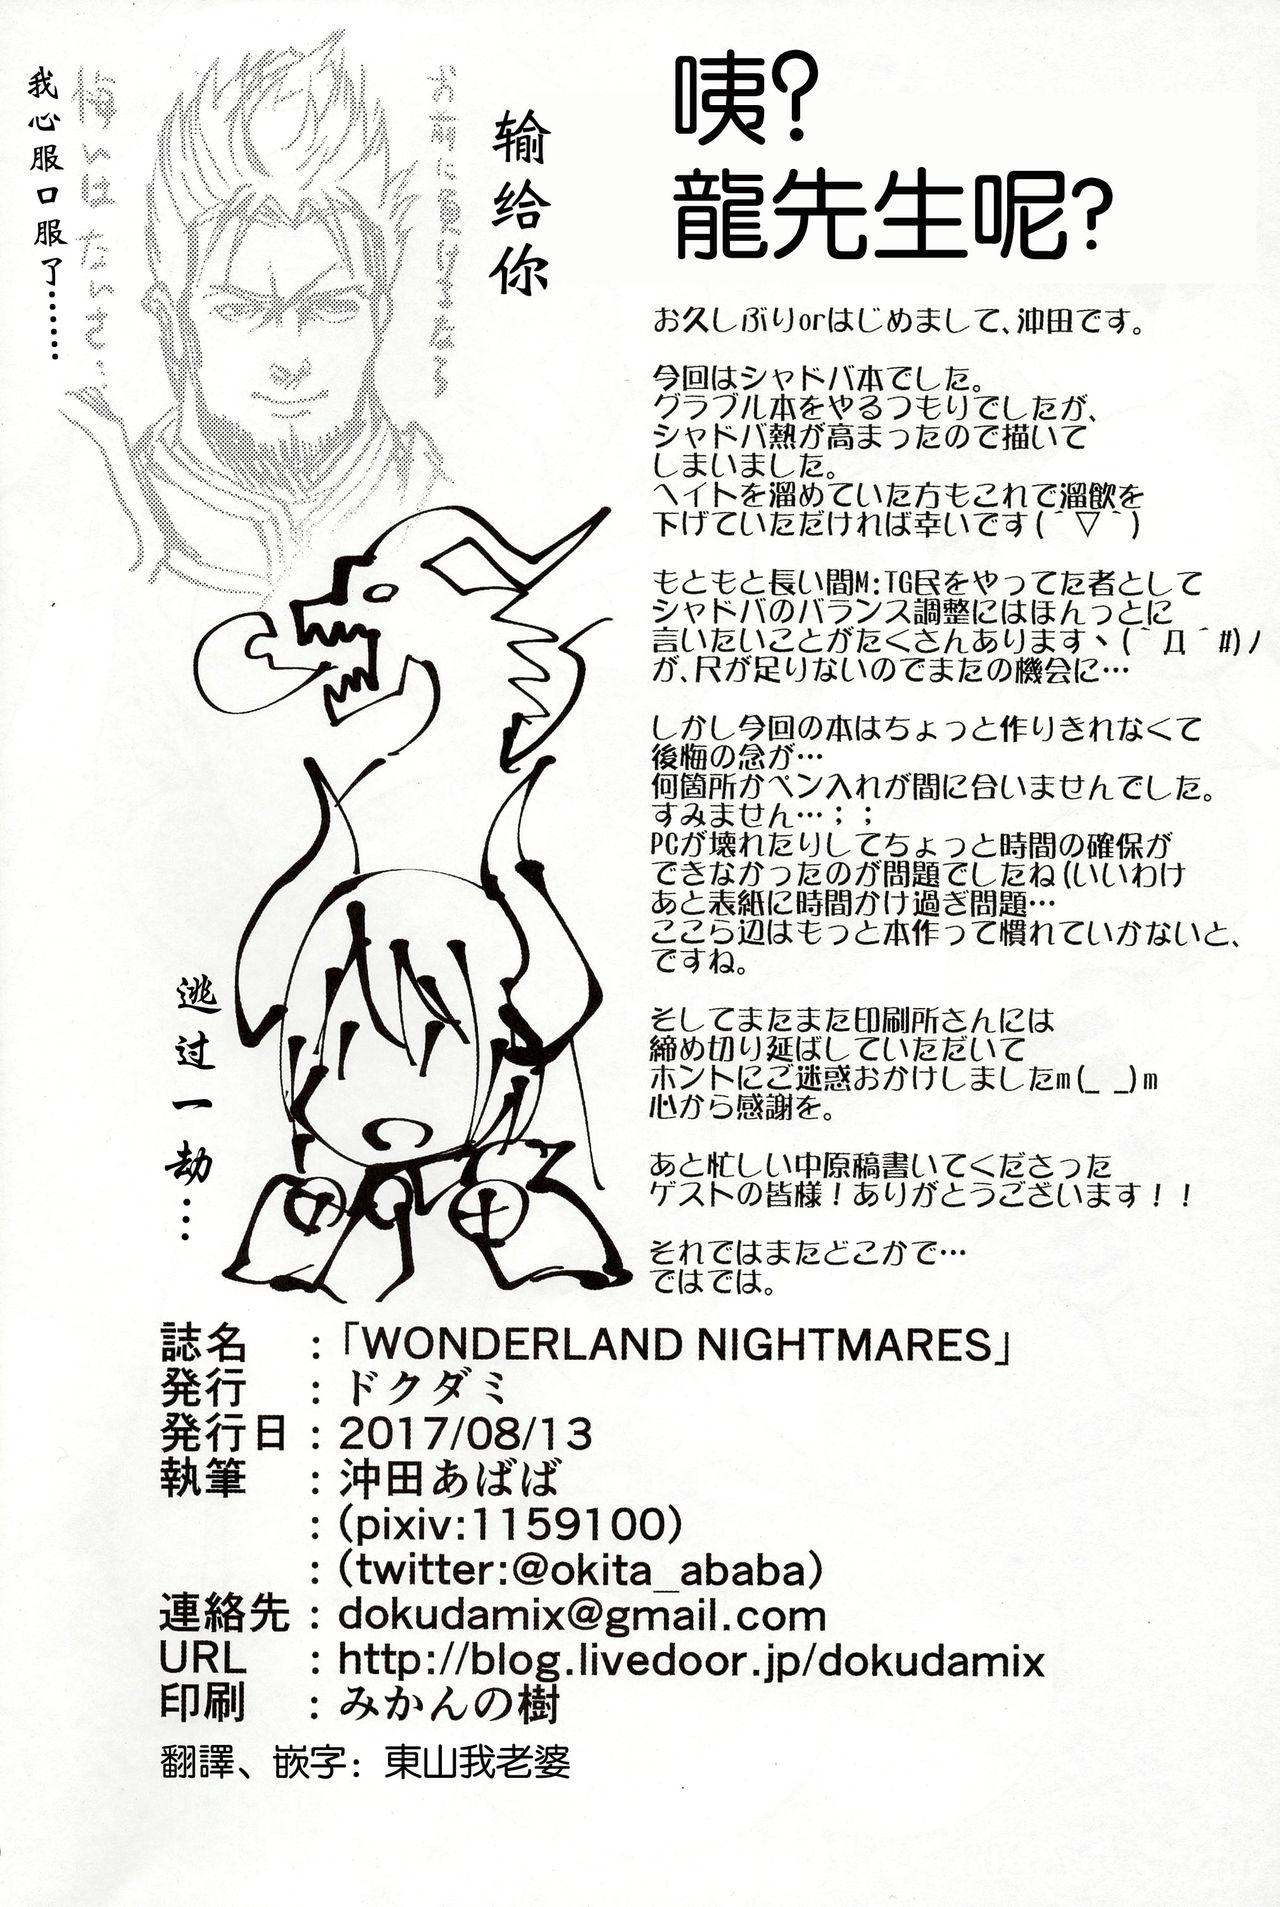 咦?
龍先生呢?
输给你
お前に負けたなら
悔いはないさ…
我心服口服了……
お久しぶりorはじめまして、沖田です。
今回はシャドバ本でした。
グラブル本をやるつもりでしたが、
シャドバ熱が高まったので描いて
しまいました。
ヘイトを溜めていた方もこれで溜飲を
下げていただければ幸いです(´▽`)
もともと長い間M:TG民をやってた者として
シャドバのバランス調整にはほんっとに
言いたいことがたくさんありますヽ(`Д´#)ﾉ
が、尺が足りないのでまたの機会に…
しかし今回の本はちょっと作りきれなくて
後悔の念が…
何箇所かペン入れが間に合いませんでした。
すみません…；；
PCが壊れたりしてちょっと時間の確保が
できなかったのが問題でしたね(いいわけ
あと表紙に時間かけ過ぎ問題…
ここら辺はもっと本作って慣れていかないと、
ですね。
そしてまたまた印刷所さんには
締め切り延ばしていただいて
ホントにご迷惑おかけしましたm(_ _)m
心から感謝を。
あと忙しい中原稿書いてくださった
ゲストの皆様！ありがとうございます！！
それではまたどこかで…
ではでは。
逃过一劫…
誌名　：「WONDERLAND NIGHTMARES」
発行　：ドクダミ
発行日：2017/08/13
執筆　：沖田あばば
：(pixiv:1159100)
：(twitter:@okita_ababa)
連絡先：dokudamix@gmail.com
URL　：http://blog.livedoor.jp/dokudamix
印刷　：みかんの樹
翻譯、嵌字：東山我老婆